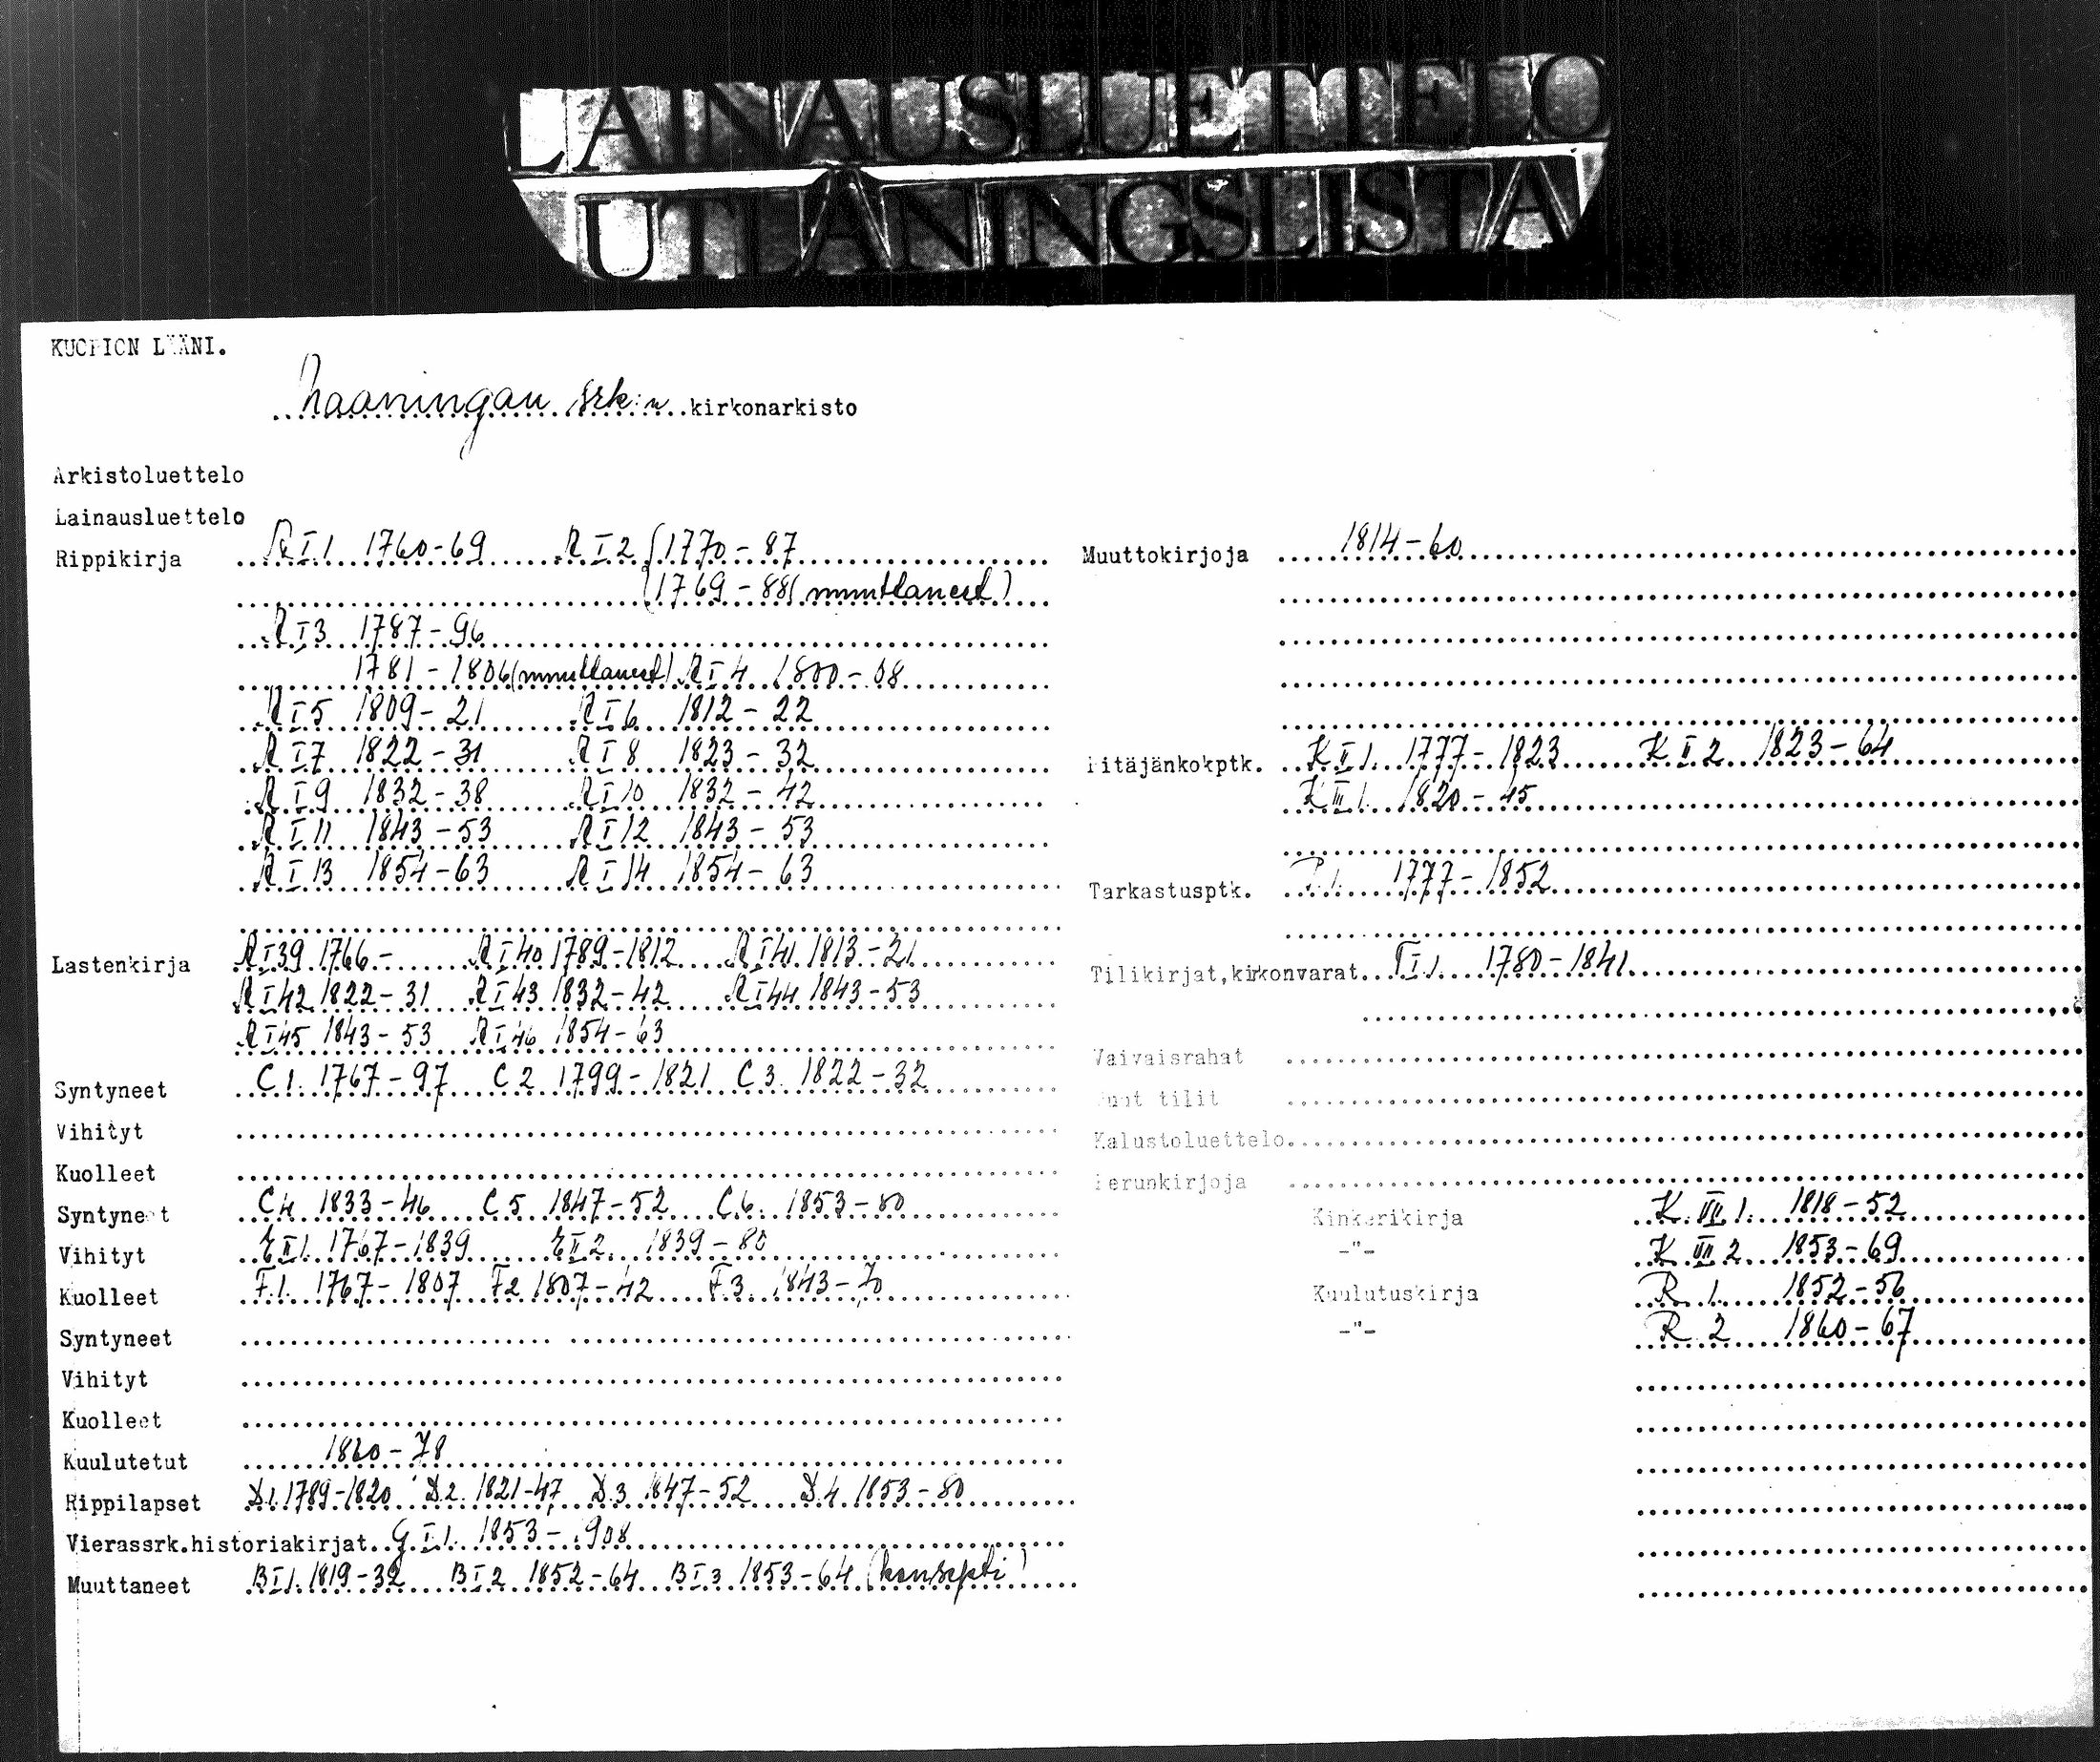 LAINAUSLUETTELO
UTLÅNINGSLISTA
KUOPION LÄÄNI.
Maaningan srk:n kirkonarkisto
Arkistoluettelo
Lainausluettelo
Rippikirja R I 1 1760-69 R I 2 1770-87
1769-88 (muuttaneet)
R I 3 1787-96
1781-1806 (muuttaneet) R I 4 1800-08
R I 5 1809-21 R I 6 1812-22
R I 7 1822-31 R I 8 1823-32
R I 9 1832-38 R I 10 1832-42
R I 11 1843-53 R I 12 1843-53
R I 13 1854-63 R I 14 1854-63
Lastenkirja R I 39 1766- R I 40 1789-1812 R I 41 1813-21
R I 42 1822-31 R I 43 1832-42 R I 44 1843-53
R I 45 1843-53 R I 46 1854-63
Syntyneet C 1. 1767-97 C 2 1799-1821 C 3. 1822-32
Vihityt
Kuolleet
Syntyneet C 4 1833-46 C 5 1847-52 C 6. 1853-80
Vihityt E II 1. 1767-1839 E II 2. 1839-80
Kuolleet F. 1. 1767-1807 F 2 1807-42 F. 3. 1843-70
Syntyneet
Vihityt
Kuolleet
Kuulutetut 1860-78
Rippilapset D. 1. 1789-1820 D. 2. 1821-47 D. 3 1847-52 D. 4. 1853-80
Vierassrk.historiakirjat G I 1. 1853-1908
Muuttaneet B I 1. 1819-32 B I 2 1852-64 B I 3 1853-64 (konsepti)
Muuttokirjoja 1814-60
Pitäjänkokptk. K II 1. 1777-1823 K II 2 1823-64
K III 1. 1820-45
Tarkastusptk. P. 1. 1777-1852
Tilikirjat,kirkonvarat T I 1 1780-1841
Vaivaisrahat
Muut tilit
Kalustoluettelo
Perunkirjoja
Kinkerikirja K. VII 1. 1818-52
-"- K VII 2 1853-69
Kuulutuskirja R. 1. 1852-56
-"- R. 2 1860-67